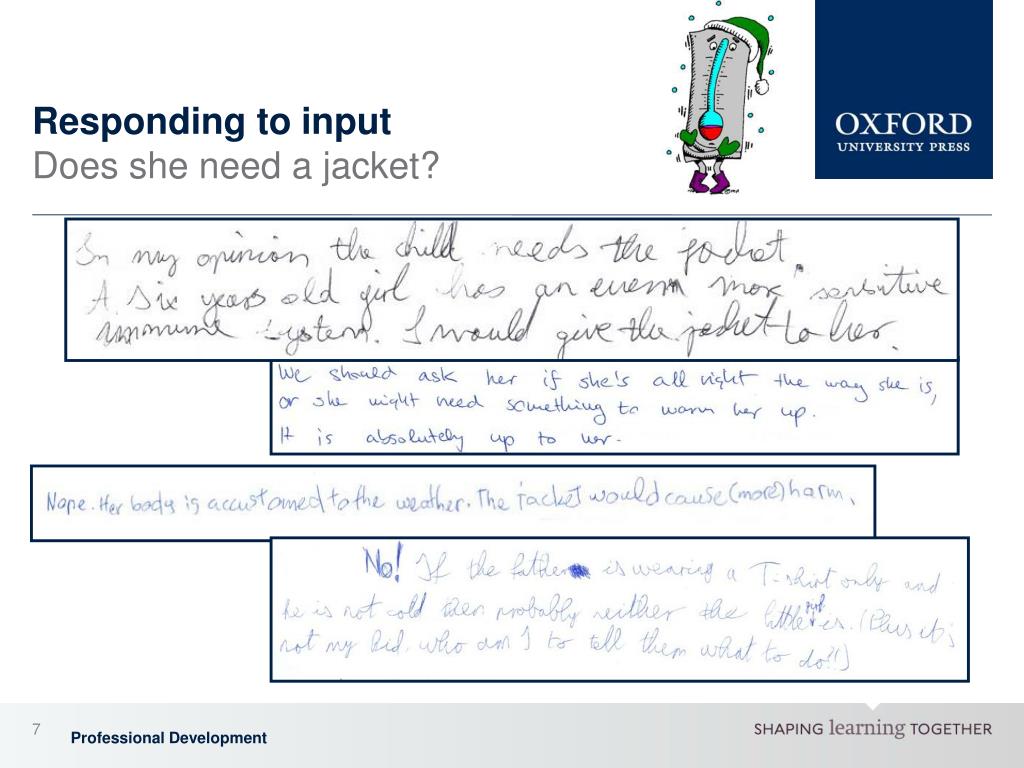 OXFORD
UNIVERSITY PRESS
Responding to input
Does she need a jacket?
In my opinion the child needs the jacket.
A six years old girl has an even more sensitive
immune system. I would give the jacket to her.
We should ask her if she's all right the way she is,
or she might need something to warm her up.
It is absolutely up to her.
Nope. Her body is accustomed to the weather. The jacket would cause (more) harm.
No! If the father is wearing a T-shirt only and
he is not cold then probably neither the little girl is. (Plus it's
not my kid, who am I to tell them what to do?!)
7
Professional Development
SHAPING learning TOGETHER